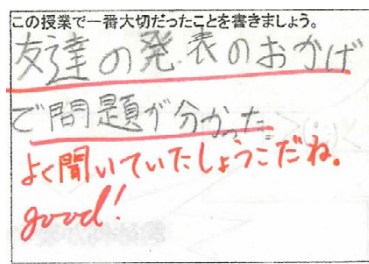 この授業で一番大切だったことを書きましょう。
友達の発表のおかげ
で問題が分かった
よく聞いていたしょうこだね。
good!